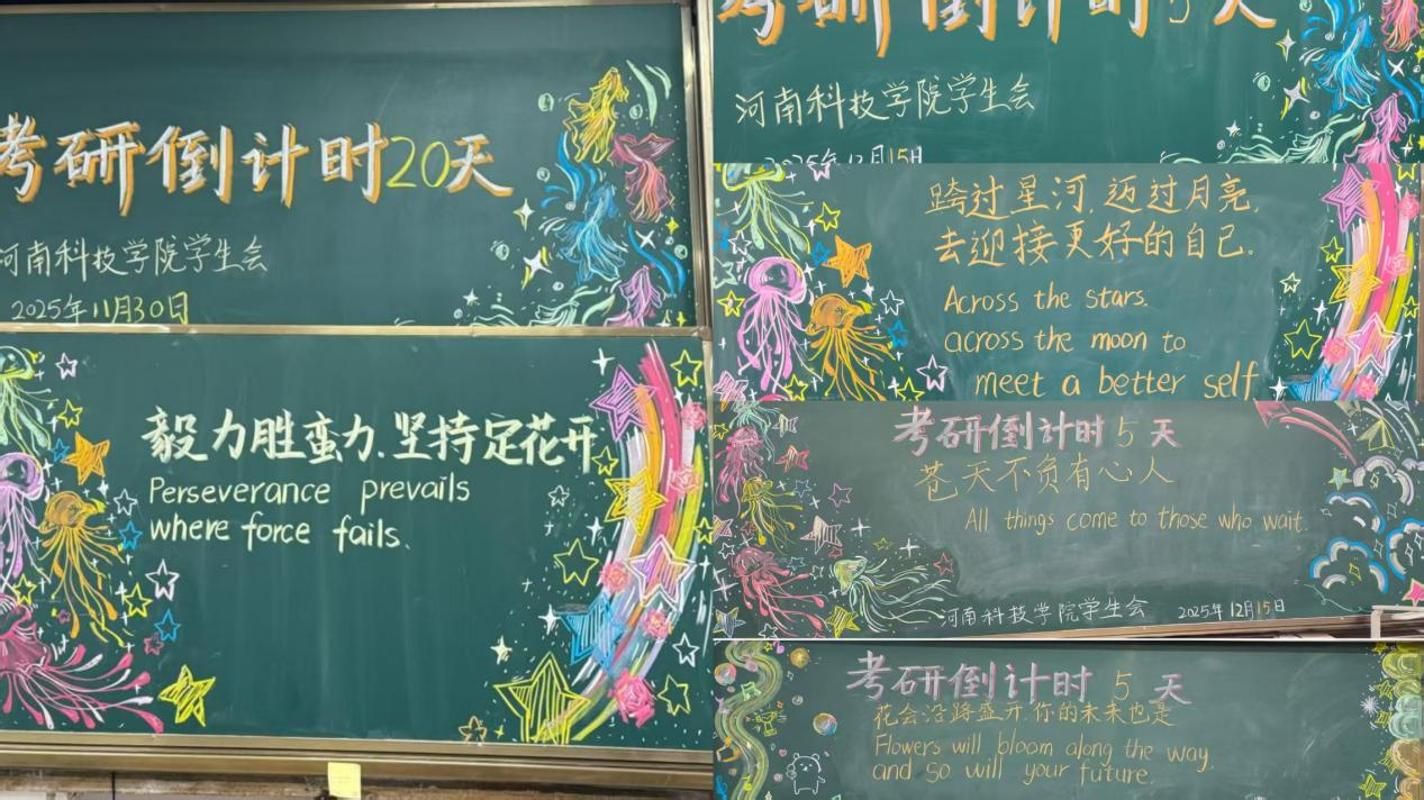 考研倒计时20天
河南科技学院学生会
2025年11月30日
毅力胜蛮力.坚持定花开
Perseverance prevails
where force fails.
考研倒计时5天
河南科技学院学生会
2025年12月15日
跨过星河,迈过月亮,
去迎接更好的自己.
Across the stars.
across the moon to
meet a better self
考研倒计时5天
苍天不负有心人
All things come to those who wait.
河南科技学院学生会 2025年12月15日
考研倒计时5天
花会沿路盛开,你的未来也是
Flowers will bloom along the way,
and so will your future.